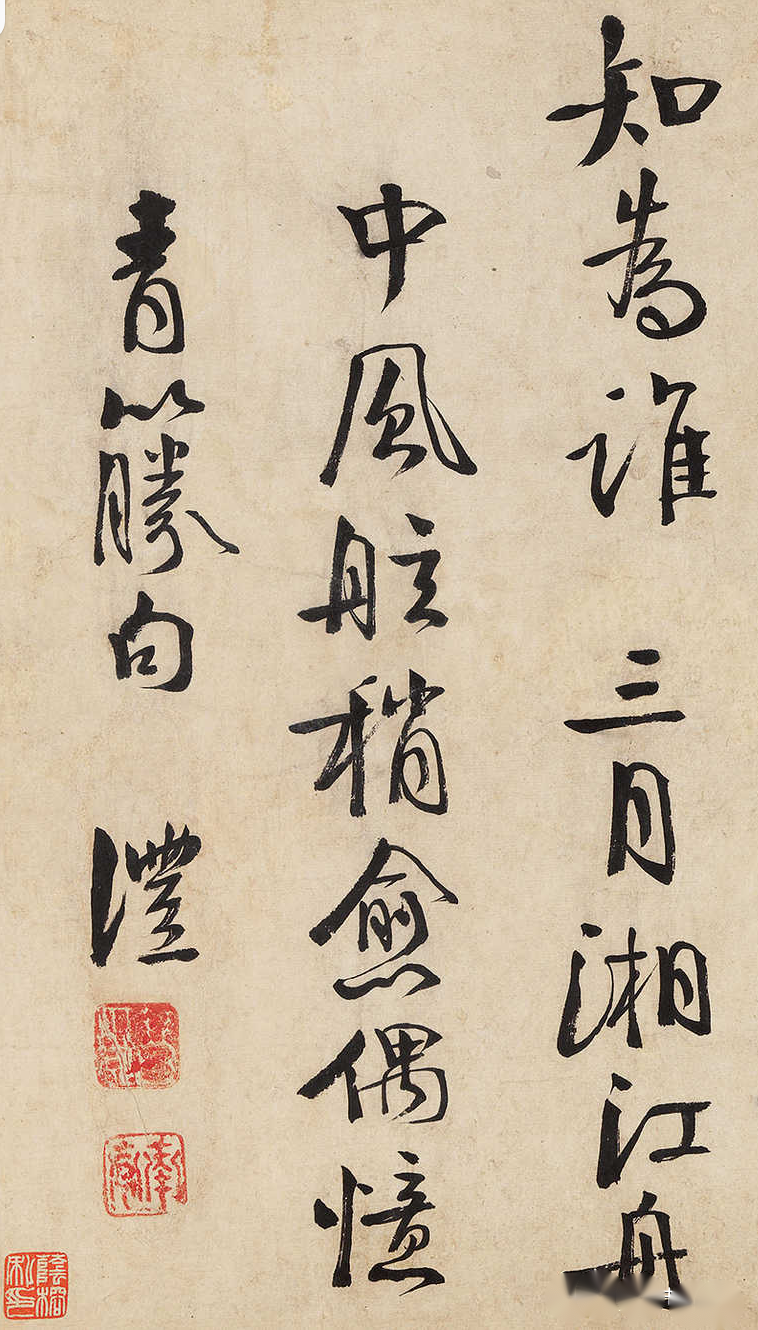 知為誰 三月湘江舟
中風眩稍愈偶憶
青藤句 澧